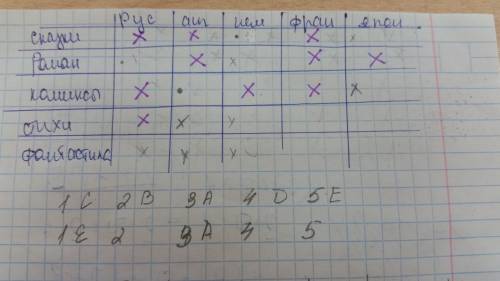 рус анг нем фран япон
сказки X X • X x
роман • X x X X
комиксы X • X X X
стихи X x x
фантастика x x x
1 C 2 B 3 A 4 D 5 E
1 E 2 3 A 4 5